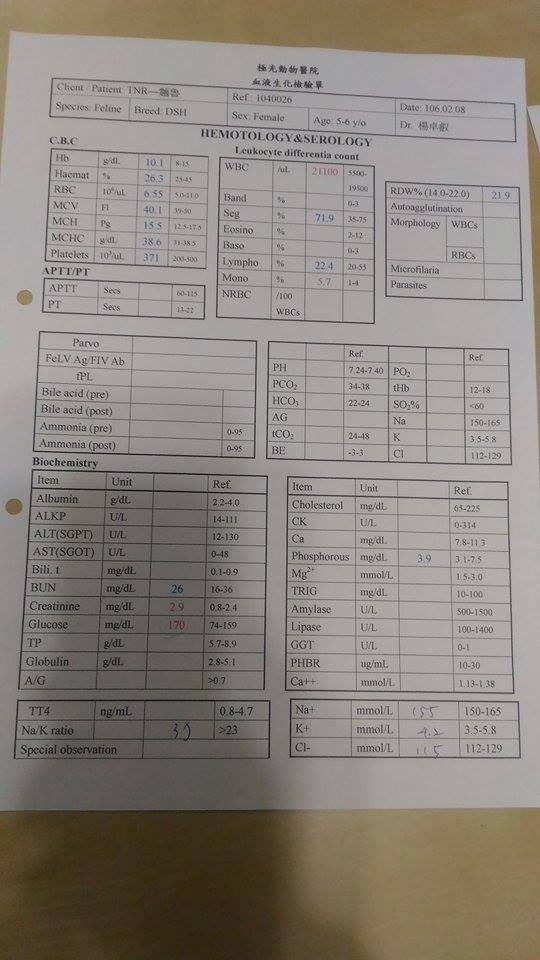 極光動物醫院
血液生化檢驗單
Client / Patient: TNR—麵魯 Ref.: 1040026 Date: 106.02.08
Species: Feline Breed: DSH Sex: Female Age: 5-6 y/o Dr. 楊卓叡
HEMOTOLOGY&SEROLOGY
C.B.C
Hb g/dL 10.1 8-15
Haemat % 26.3 25-45
RBC 10⁶/uL 6.55 5.0-11.0
MCV Fl 40.1 39-50
MCH Pg 15.5 12.5-17.5
MCHC g/dL 38.6 31-38.5
Platelets 10³/uL 371 200-500
APTT/PT
APTT Secs 60-115
PT Secs 13-22
Leukocyte differentia count
WBC /uL 21100 5500-19500
Band % 0-3
Seg % 71.9 35-75
Eosino % 2-12
Baso % 0-3
Lympho % 22.4 20-55
Mono % 5.7 1-4
NRBC /100 WBCs
RDW% (14.0-22.0) 21.9
Autoagglutination
Morphology WBCs
RBCs
Microfilaria
Parasites
Parvo
FeLV Ag/FIV Ab
fPL
Bile acid (pre)
Bile acid (post)
Ammonia (pre) 0-95
Ammonia (post) 0-95
Ref. Ref.
PH 7.24-7.40 PO₂
PCO₂ 34-38 tHb 12-18
HCO₃ 22-24 SO₂% <60
AG Na 150-165
tCO₂ 24-48 K 3.5-5.8
BE -3-3 Cl 112-129
Biochemistry
Item Unit Ref.
Albumin g/dL 2.2-4.0
ALKP U/L 14-111
ALT(SGPT) U/L 12-130
AST(SGOT) U/L 0-48
Bili. t mg/dL 0.1-0.9
BUN mg/dL 26 16-36
Creatinine mg/dL 2.9 0.8-2.4
Glucose mg/dL 170 74-159
TP g/dL 5.7-8.9
Globulin g/dL 2.8-5.1
A/G >0.7
Item Unit Ref.
Cholesterol mg/dL 65-225
CK U/L 0-314
Ca mg/dL 7.8-11.3
Phosphorous mg/dL 3.9 3.1-7.5
Mg²⁺ mmol/L 1.5-3.0
TRIG mg/dL 10-100
Amylase U/L 500-1500
Lipase U/L 100-1400
GGT U/L 0-1
PHBR ug/mL 10-30
Ca++ mmol/L 1.13-1.38
TT4 ng/mL 0.8-4.7
Na/K ratio >23
Special observation
Na+ mmol/L 155 150-165
K+ mmol/L 4.2 3.5-5.8
Cl- mmol/L 115 112-129